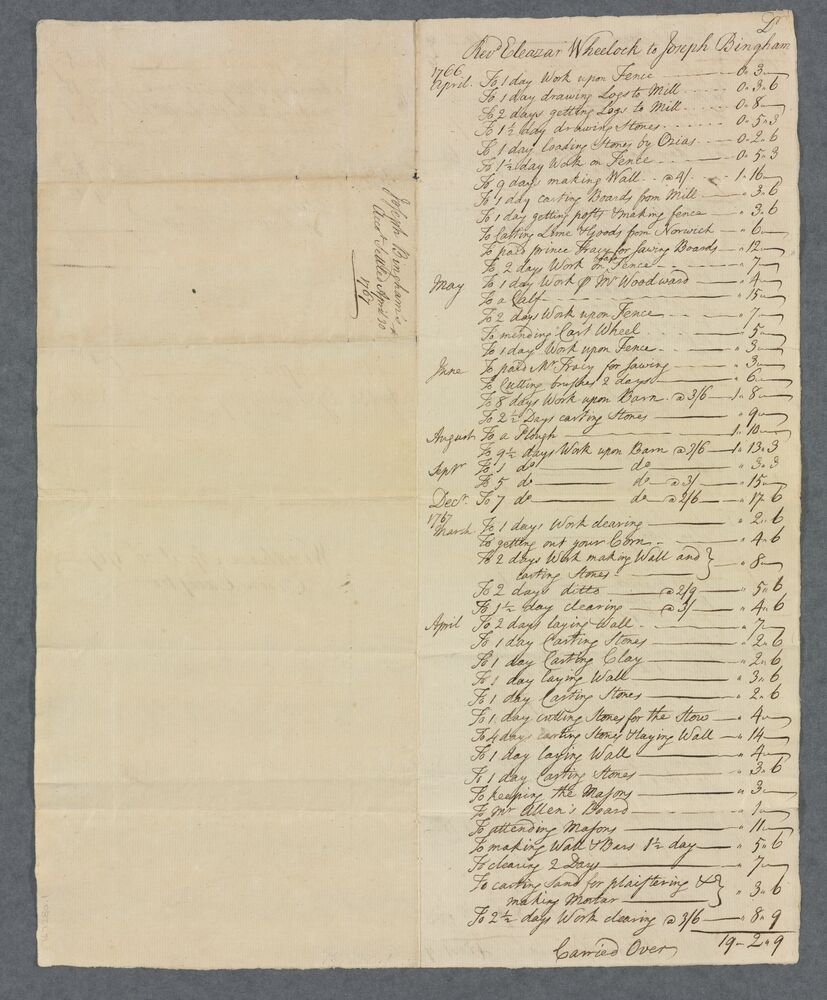 Joseph Bingham's
Acct Settled April 30
1767
Dr
Revd Eleazar Wheelock to Joseph Bingham
1766
April. To 1 day Work upon Fence 0 .. 3 ..
To 1 day drawing Logs to Mill 0 .. 3 .. 6
To 2 days getting Logs to Mill 0 .. 8 ..
To 1½ day drawing Stones 0 .. 5 .. 3
To 1 day loading Stones by Ozias 0 .. 2 .. 6
To 1½ day Work on Fence 0 .. 5 .. 3
To 9 day making Wall @ 4/. 1 .. 16
To 1 day carting Boards from Mill " 3 .. 6
To 1 day getting posts & making fence " 3 .. 6
To Carting Lime & Goods from Norwich " 6
To paid prince Tracy for sawing Boards " 12
To 2 days Work on Fence " 7
May To 1 day Work Mr Woodward " 4
To a Calf " 15
To 2 days Work upon Fence " 7
To mending Cart Wheel " 5
To 1 day Work upon Fence " 3
June To paid Mr Tracy for sawing " 3
To Cutting brushes 2 days " 6
To 8 days Work upon Barn @ 3/6 1 .. 8
To 2½ Days carting Stones " 9
August To a Plough 1 .. 10
To 9½ days Work upon Barn @ 3/6 1 .. 13 .. 3
Septr To 1 do do " 3 .. 3
To 5 do do @ 3/ " 15
Decr. To 7 do do @ 2/6 " 17 .. 6
1767
March To 1 days Work clearing " 2 .. 6
To getting out your Corn " 4 .. 6
To 2 days Work making Wall and
carting Stones } " 8
To 2 days ditto @ 2/9 " 5 .. 6
To 1½ day clearing @ 3/ " 4 .. 6
April To 2 days laying Wall " 7
To 1 day Carting Stones " 2 .. 6
To 1 day Carting Clay " 2 .. 6
To 1 day laying Wall " 3 .. 6
To 1 day Carting Stones " 2 .. 6
To 1 day cutting Stones for the Stow " 4
To 4 days carting Stones & laying Wall " 14
To 1 day laying Wall " 4
To 1 day Carting Stones " 3 .. 6
To keeping the Masons " 3
To Mr Allen's Board " 1
To attending Masons " 11
To making Wall & Bars 1½ day " 5 .. 6
To clearing 2 Days " 7
To carting Sand for plaistering &
making Mortar } " 3 .. 6
To 2½ days Work clearing @ 3/6 " 8 .. 9
Carried Over 19 .. 2 .. 9